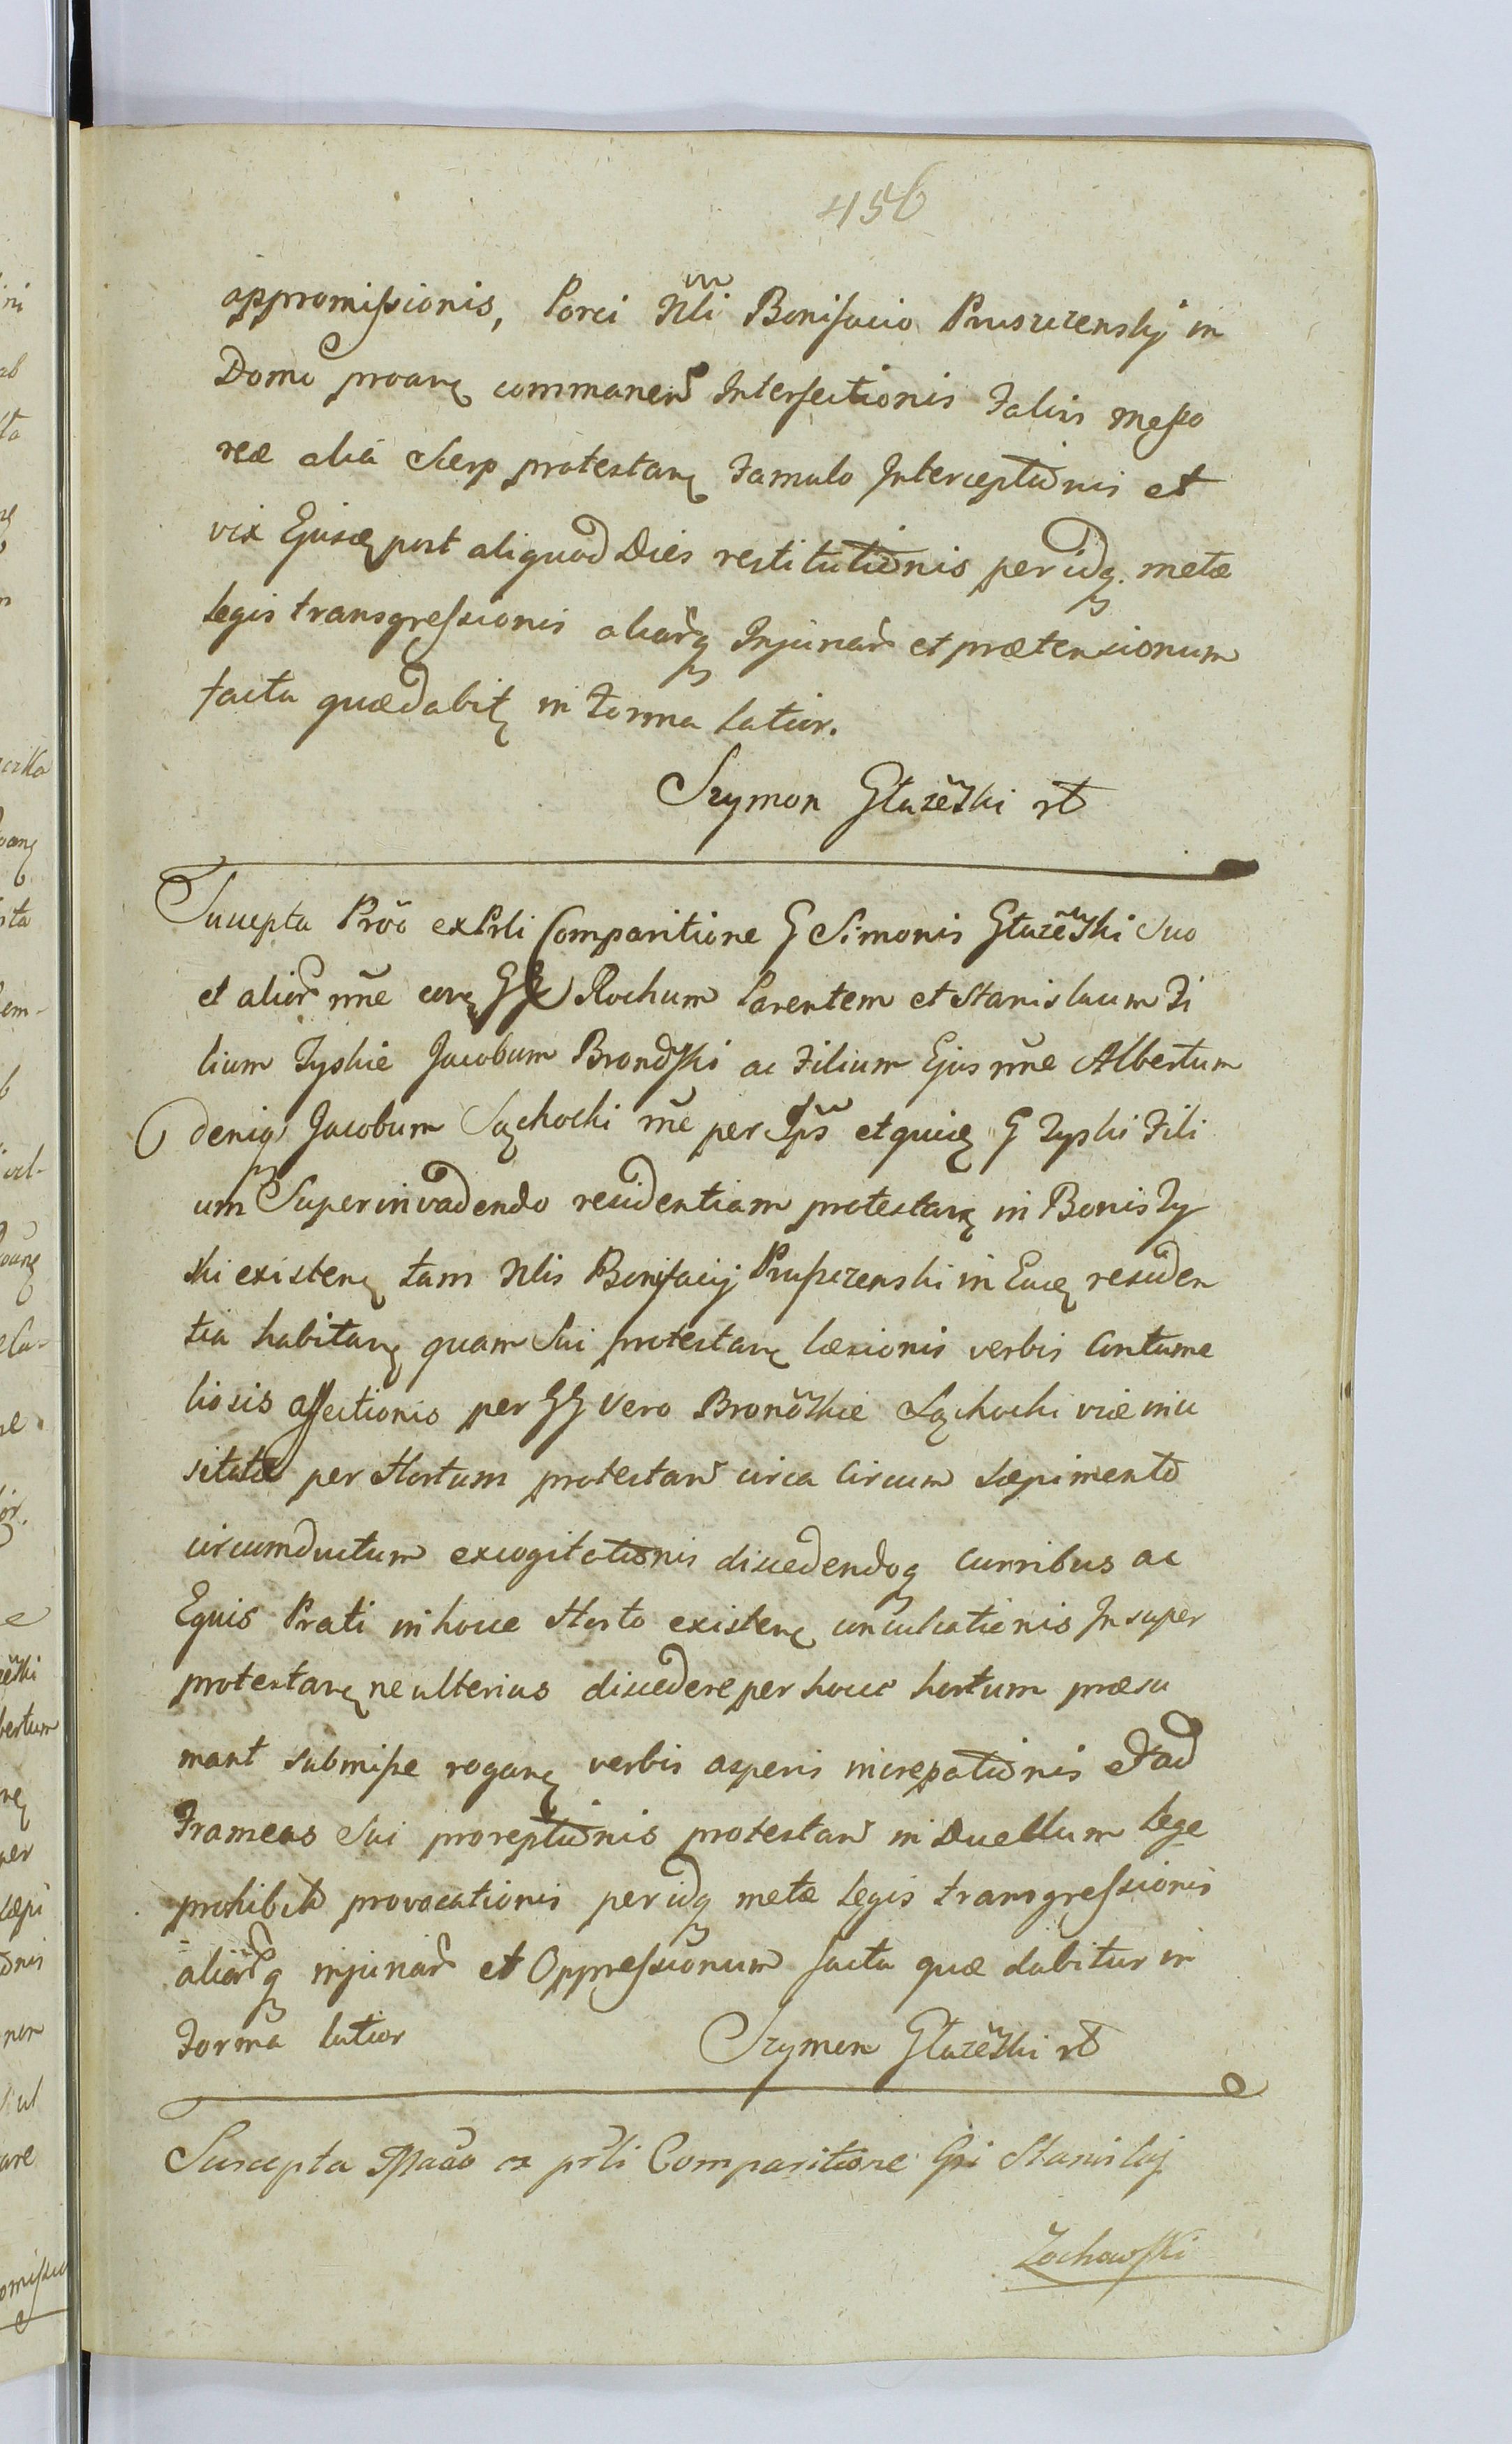 456
appromissionis, Porci Nli Bonifacio Pruszczenskij in
Domo proarͤ commanen Interfectionis Falcis messo
reæ aliâ Sierp protestarͤ Famulo Interceptionis et
vix Ejusdͤ post aliquod Dies restitutionis per idq. metæ
Legis transgressionis aliarq Injuriar et prætensionum
facta quæ dabitͤ in Forma latior.
Szymon Głazeski rt
Suscepta Prõo ex Prli Comparitione G Simonis Głazẽski suo
et alior nñe corͤ GG Rochum Parentem et Stanislaum Fi
lium Zyskie Jacobum Brondski ac Filium Ejus nñe Albertum
deniq Jacobum Sąchocki nñe per Ipš et quidͤ G Zyski Fili
um Super invadendo residentiam protestarͤ in Bonis Zy
ski existenͤ tam Nlis Bonifacij Pruszczenski in Eadͤ residen
tia habitanͤ quam Sui protestarͤ læsionis verbis Contume
liosis affectionis per GG vero Bronõskie Sąchocki viæ inu
sitatæ per Hortum protestan circa Circum sæpimento
circumductum excogitationis discedendoq Curribus ac
Equis Prati in hocce Horto existenͤ conculcationis Insuper
protestarͤ ne ulterius discedere per hocce hortum præsu
mant submisse roganͤ verbis asperis increpationis et ad
Frameas Sui proreptionis protestan in Duellum Lege
prohibito provocationis per idq metæ Legis transgressionis
aliarq injuriar et Oppressionum facta quæ dabitur in
Forma latior Szymon Głazẽski rt
Suscepta Mãão ex prli Comparitione Gsi Stanislaj
Zochowski